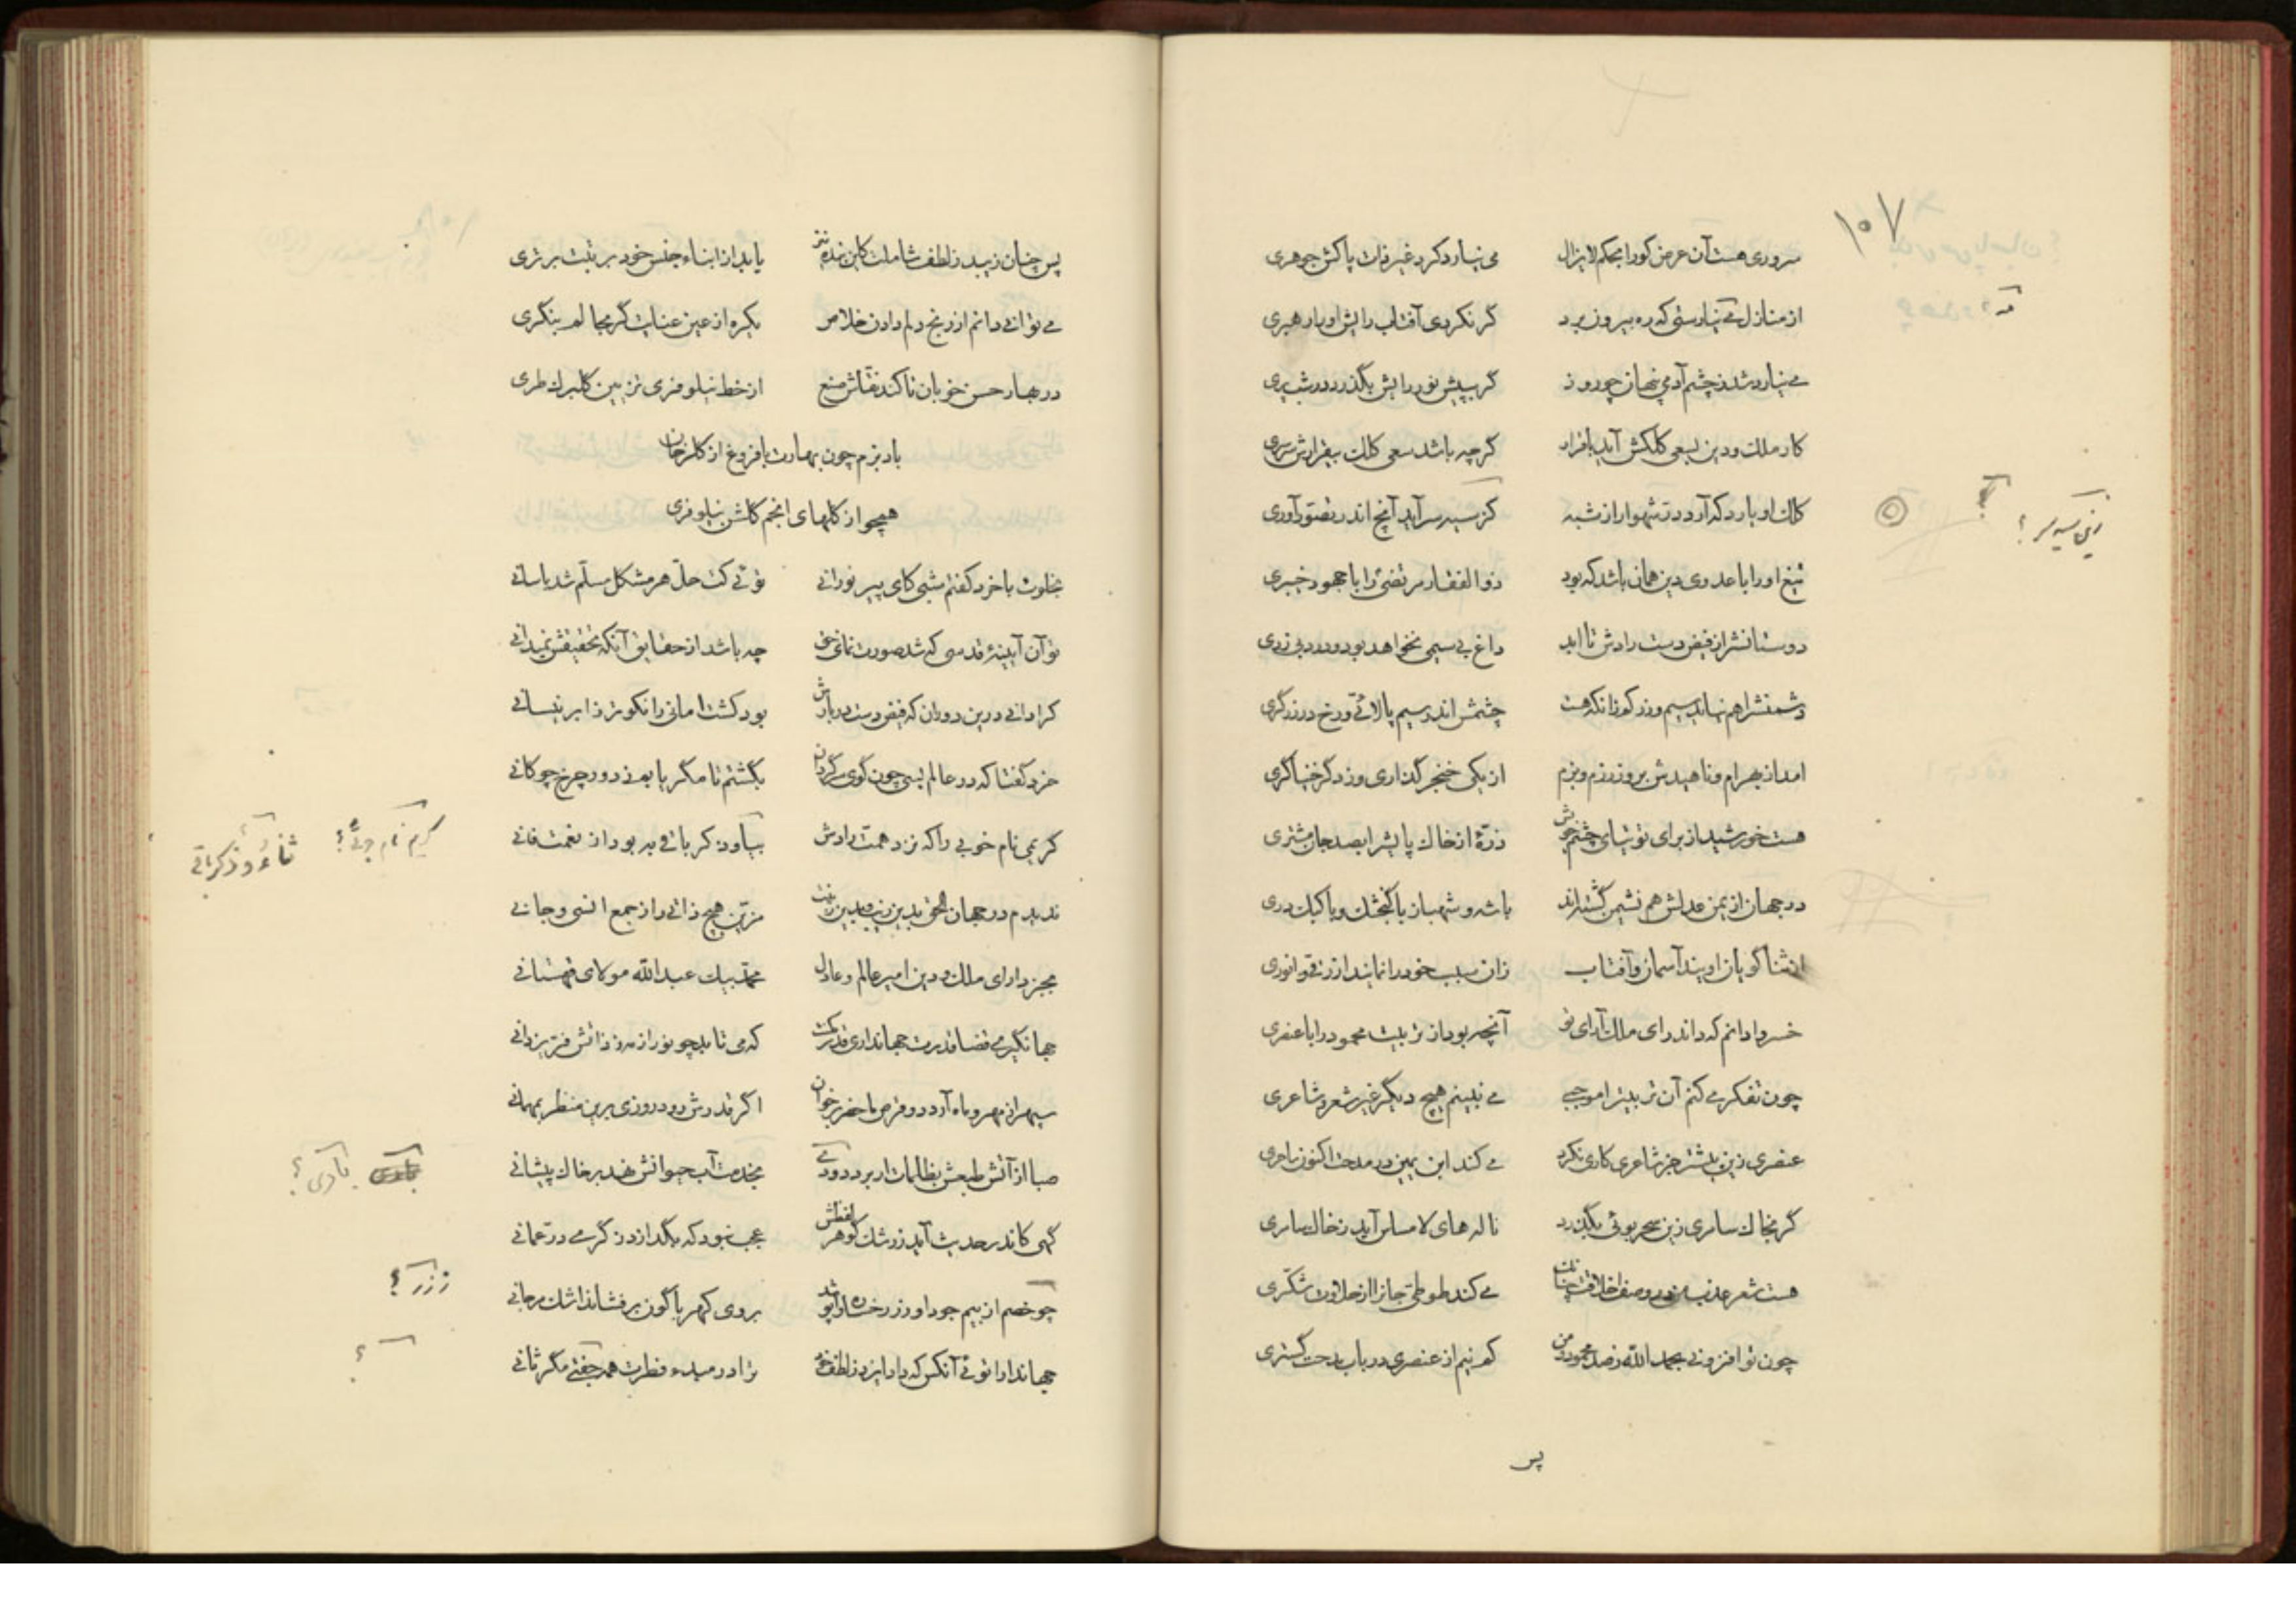 ۱۰۷
سروری هست آن عرض کورا بحکم لایزال می نیارد کرد غیر ذات پاکش جوهری
از منازل می نیارستی که ره بیرون برد گر نکردی آفتاب رایش او را رهبری
می نیارد شد ز چشم آدمی پنهان چو روز گر بپیش نور رایش بگذرد در شب پری
کار ملک و دین بسعی کلکش آید با قرار گرچه باشد سعی کلک بیقرارش سرسری
کلک او یارد که آرد در شهوار از شبه کز سیه سر آید آنچ اندر تصور آوری
زین سیه سر ؟
تیغ او را با عدوی دین همان باشد که بود ذوالفقار مرتضی را با جهود خیبری
دوستانش را ز فیض دست رادش تا ابد داغ بی سیمی نخواهد بود و درد بی زری
دشمنش را هم نماند سیم و زر کو زانکه هست چشمش اندر سیم پالائی و رخ در زرگری
امد از بهرام و ناهیدش بروز رزم و بزم از یکی خنجر گذاری وز دگر خنیاگری
هست خورشید از برای توتیای چشم خویش ذرّهٔ از خاک پایش را بصد جان مشتری
در جهان از یمن عدلش هم نشیمن گشته‌اند باشه و شهباز با گنجشک و با کبک دری
از ثنا گویان اویند آسمان و آفتاب زان سبب خود را نمایند ازرقی و انوری
خسروا دانم که داند رای ملک آرای تو آنچه بود از تربیت محمود را با عنصری
چون تفکر می کنم آن تربیت را موجبی می نبینم هیچ دیگر غیر شعر و شاعری
عنصری زین بیشتر جز شاعری کاری نکرد می کند ابن یمین در مدحت اکنون ساحری
گر بخاک سامری زین سحر بوئی بگذرد ناله های لا مساس آید ز خاک سامری
هست شعر عذب من در وصف اخلاقت چنانک می کند طوطی جان را از حلاوت شکّری
چون تو افزونی بحمد الله ز صد محمود و من کم نیم از عنصری در باب مدحت گستری
پس
پس چنان زیبد ز لطف شاملت کاین بنده نیز یابد از ابناء جنس خود بر تبت برتری
می توانی دانم از رنج دلم دادن خلاص یکره از عین عنایت گر بحالم بنگری
در بهار حسن خوبان تا کند نقّاش صنع از خط نیلوفری تزیین گلبرگ طری
باد بزم چون بهارت با فروغ از گلرخان
همچو از گلهای انجم گلشن نیلوفری
بخلوت با خرد گفتم شبی کای پیر نورانی توئی کت حلّ هر مشکل مسلّم شد بآسانی
تو آن آیینهٔ قدسی که شد صورت نمای حق چه باشد از حقایق آنکه تحقیقش نمیدانی
کرا دانی درین دوران که فیض دست دربارش بود کشت امانی را نکوتر ز ابر نیسانی
خرد گفتا که در عالم بسی چون گوی سرگردان بگشتم تا مگر یابم ز دور چرخ چوگانی
کریمی نام خوبی را که نزد همت رادش بیاود کر باقی به بود از نعمت فانی
کریم نام جوئی ؟ ثناء و ذکر باقی
ندیدم در جهان الحق بدین زیب و بدین زینت مزیّن هیچ ذاتی را ز جمع انسی و جانی
بجز دارای ملک و دین امیر عالم و عادل محمّد بیک عبدالله مولای قهستانی
جهانگیری قضا قدرت جهانداری قدر مکنت که می تابد چو نور از مه ز ذاتش فرّ یزدانی
سپهر از مهر و ماه آرد دو قرص ما حضر بر خوان اگر قدرش رود روزی برین منظر بمهمانی
صبا از آتش طبعش بظلمات ار برد دودی بخدمت آب حیوانش نهد بر خاک پیشانی
بآدی ؟
گهی کاندر حدیث آید ز رشک گوهر لفظش عجب نبود که بگدازد ز گرمی درّ عمانی
چو خصم از بیم جود او زر رخساره او شد بروی کهربا گون بر فشاند اشک مرجانی
ز زر ؟
جهاندارا توئی آنکس که دادار ایزد ز لطف خود ترا در مبدء فطرت همه چیزی مگر ثانی
؟